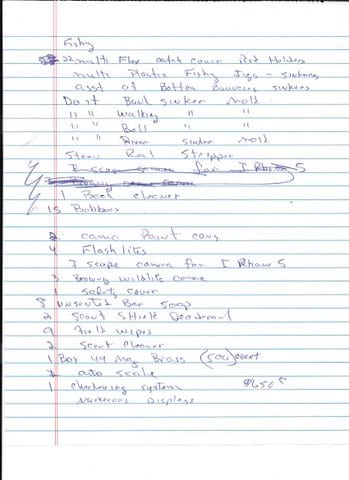 Fishy
22 multi Flex catch cover Rod Holders
multi Plastic Fishy Jigs - sinkers
asst of Bottom Bouncers sinkers
Do it Boul sinker mold
" " Walking " "
" " Ball " "
" " River sinker mold
Reel Stripper
for I Phone 5
1 Reel cleaner
15 Bobbers
2 camo Paint cans
4 Flash lites
I scope camera for I Phone 5
3 Browny wildlife camra
1 Safety cover
8 unsented Bar Soap
2 Scout Shield Deodorant
9 Field wipes
2 Scout Cleaner
1 Box 44 Mag Brass (500) count
scale
1 Checkoung system $650
numerous Displays